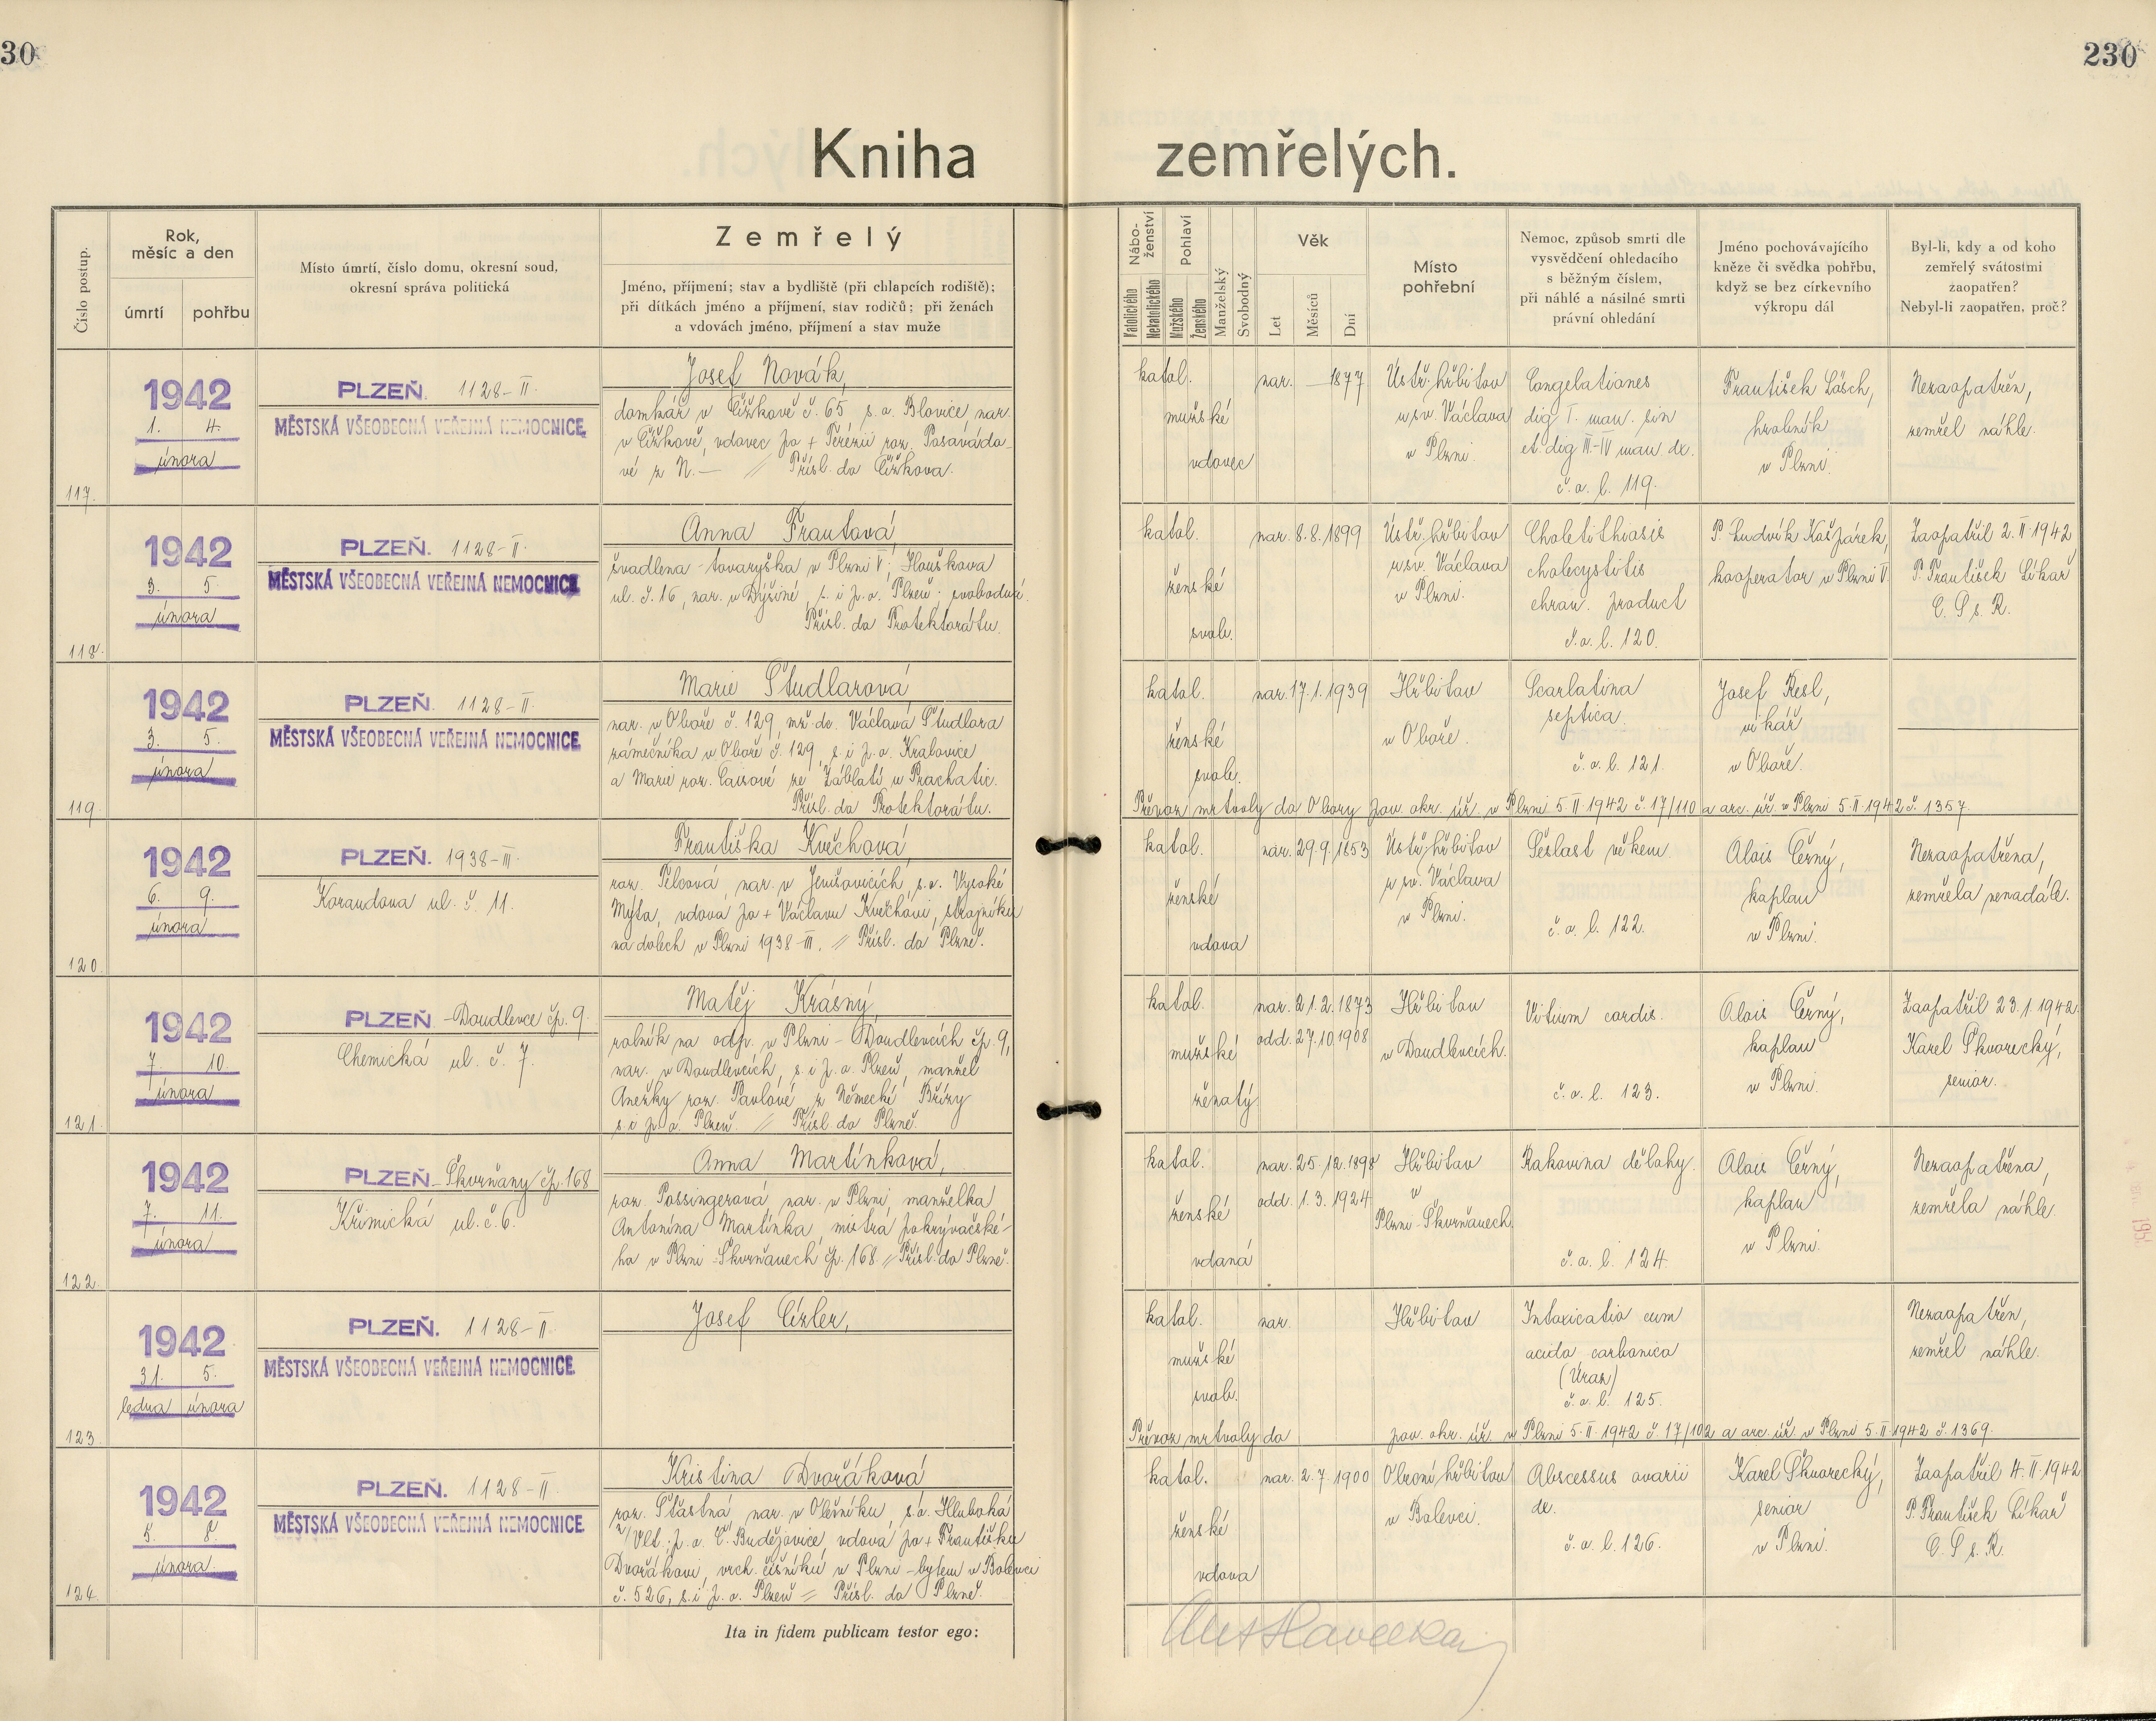 30
230
Kniha zemřelých.
Číslo postup.
Rok,
měsíc a den
úmrtí
pohřbu
Místo úmrtí, číslo domu, okresní soud,
okresní správa politická
Zemřelý
Jméno, příjmení; stav a bydliště (při chlapcích rodiště);
při dítkách jméno a příjmení, stav rodičů; při ženách
a vdovách jméno, příjmení a stav muže
Nábo-
ženství
Katolického
Nekatolického
Pohlaví
Mužského
Ženského
Manželský
Svobodný
Věk
Let
Měsíců
Dní
Místo
pohřební
Nemoc, způsob smrti dle
vysvědčení ohledacího
s běžným číslem,
při náhlé a násilné smrti
právní ohledání
Jméno pochovávajícího
kněze či svědka pohřbu,
když se bez církevního
výkropu dál
Byl-li, kdy a od koho
zemřelý svátostmi
zaopatřen?
Nebyl-li zaopatřen, proč?
117.
1942
1. 4.
února
PLZEŇ. 1128-II.
MĚSTSKÁ VŠEOBECNÁ VEŘEJNÁ NEMOCNICE
Josef Novák,
domkář v Čížkově č. 65 s.o. Blovice, nar.
v Čížkově, vdovec po + Terézii roz. Pasavárdo-
vé z N.— // Přísl. do Čížkova.
katol.
mužské
vdovec
nar. — 1877
Ústř. hřbitov
u sv. Václava
v Plzni.
Congelationes
dig I. man. sin
et. dig III-IV man dx.
č.o.l. 119.
František Läsch,
hrobník
v Plzni.
Nezaopatřen,
zemřel náhle.
118.
1942
3. 5
února
PLZEŇ. 1128-II.
MĚSTSKÁ VŠEOBECNÁ VEŘEJNÁ NEMOCNICE
Anna Frantová,
švadlena - tovaryška v Plzni V; Houškova
ul. č. 16, nar. v Dýšině, s. i p.o. Plzeň; svobodná.
Přísl. do Protektorátu.
katol.
ženské
svob.
nar. 8.8.1899
Ústř. hřbitov
u sv. Václava
v Plzni.
Cholelithiasis
cholecystitis
chron. product
č.o.l. 120.
P. Ludvík Kašpárek,
kooperator v Plzni V.
Zaopatřil 2.II.1942
P. František Líkař
C. S s. R.
119.
1942
3. 5.
února
PLZEŇ. 1128-II.
MĚSTSKÁ VŠEOBECNÁ VEŘEJNÁ NEMOCNICE
Marie Študlarová
nar. v Oboře č. 129, mž. dc. Václava Študlara
zámečníka v Oboře č. 129, s. i p.o. Kralovice
a Marie roz. ze Záblatí u Prachatic.
Přísl. do Protektorátu.
katol.
ženské
svob.
nar. 17.1.1939
Hřbitov
v Oboře.
Scarlatina
septica.
č.o.l. 121.
Josef Resl,
vikář
v Oboře.
Převoz mrtvoly do Obory pov. okr. úř. v Plzni 5.II.1942 č. 17/110 a arc. úř. v Plzni 5.II.1942 č. 1357.
120.
1942
6. 9.
února
PLZEŇ. 1938-III.
Korandova ul. č. 11.
Františka Květchová,
roz. Pelcová, nar. v Jenišovicích, s.o. Vysoké
Mýto, vdova po + Václavu Květchovi, strojníku
na dolech v Plzni 1938-III. // Přísl. do Plzně.
katol.
ženské
vdova
nar. 29.9.1853
Ústř. hřbitov
u sv. Václava
v Plzni.
Sešlost věkem
č.o.l. 122.
Alois Černý,
kaplan
v Plzni.
Nezaopatřena,
zemřela nenadále.
121.
1942
7. 10.
února
PLZEŇ - Doudlevce čp. 9.
Chemická ul. č. 7.
Matěj Krásný,
rolník na odp. v Plzni - Doudlevcích čp. 9,
nar. v Doudlevcích, s. i p.o. Plzeň, manžel
Anežky roz. Pavlové z Německé Břízy
s. i p.o. Plzeň. // Přísl. do Plzně.
katol.
mužské
ženatý
nar. 21.2.1873
odd. 27.10.1908
Hřbitov
v Doudlevcích.
Vitium cordis.
č.o.l. 123.
Alois Černý,
kaplan
v Plzni.
Zaopatřil 23.1.1942.
Karel Škvorecký,
senior.
122.
1942
7. 11.
února
PLZEŇ - Škvrňany čp. 168
Křimická ul. č. 6.
Anna Martínková,
roz. Possingerová, nar. v Plzni, manželka
Antonína Martínka, mistra pokrývačské-
ho v Plzni - Škvrňanech čp. 168 // Přísl. do Plzně.
katol.
ženské
vdaná
nar. 25.12.1898
odd. 1.3.1924
Hřbitov
v
Plzni - Škvrňanech.
Rakovina dělohy.
č.o.l. 124.
Alois Černý,
kaplan
v Plzni.
Nezaopatřena,
zemřela náhle.
123.
1942
31. 5.
ledna února
PLZEŇ. 1128-II.
MĚSTSKÁ VŠEOBECNÁ VEŘEJNÁ NEMOCNICE
Josef Cizler,
katol.
mužské
svob.
nar.
Hřbitov
Intoxicatio cum
acido carbonico
(Úraz)
č.o.l. 125.
Nezaopatřen,
zemřel náhle.
Převoz mrtvoly do pov. okr. úř. v Plzni 5.II.1942 č. 17/102 a arc. úř. v Plzni 5.II.1942 č. 1369.
124.
1942
5. 8.
února
PLZEŇ. 1128-II.
MĚSTSKÁ VŠEOBECNÁ VEŘEJNÁ NEMOCNICE
Kristina Dvořáková
roz. Šťastná, nar. v Olešníku, s.o. Hluboká
n/Vlt. p.o. Č. Budějovice, vdova po + Františku
Dvořákovi, vrch. číšníku v Plzni - bytem v Bolevci
č. 526, s. i p.o. Plzeň = Přísl. do Plzně.
katol.
ženské
vdova
nar. 2.7.1900
Obecní hřbitov
v Bolevci.
Abscessus ovarii
dx.
č.o.l. 126.
Karel Škvorecký,
senior
v Plzni.
Zaopatřil 4.II.1942
P. František Líkař
C. S s. R.
Ita in fidem publicam testor ego: